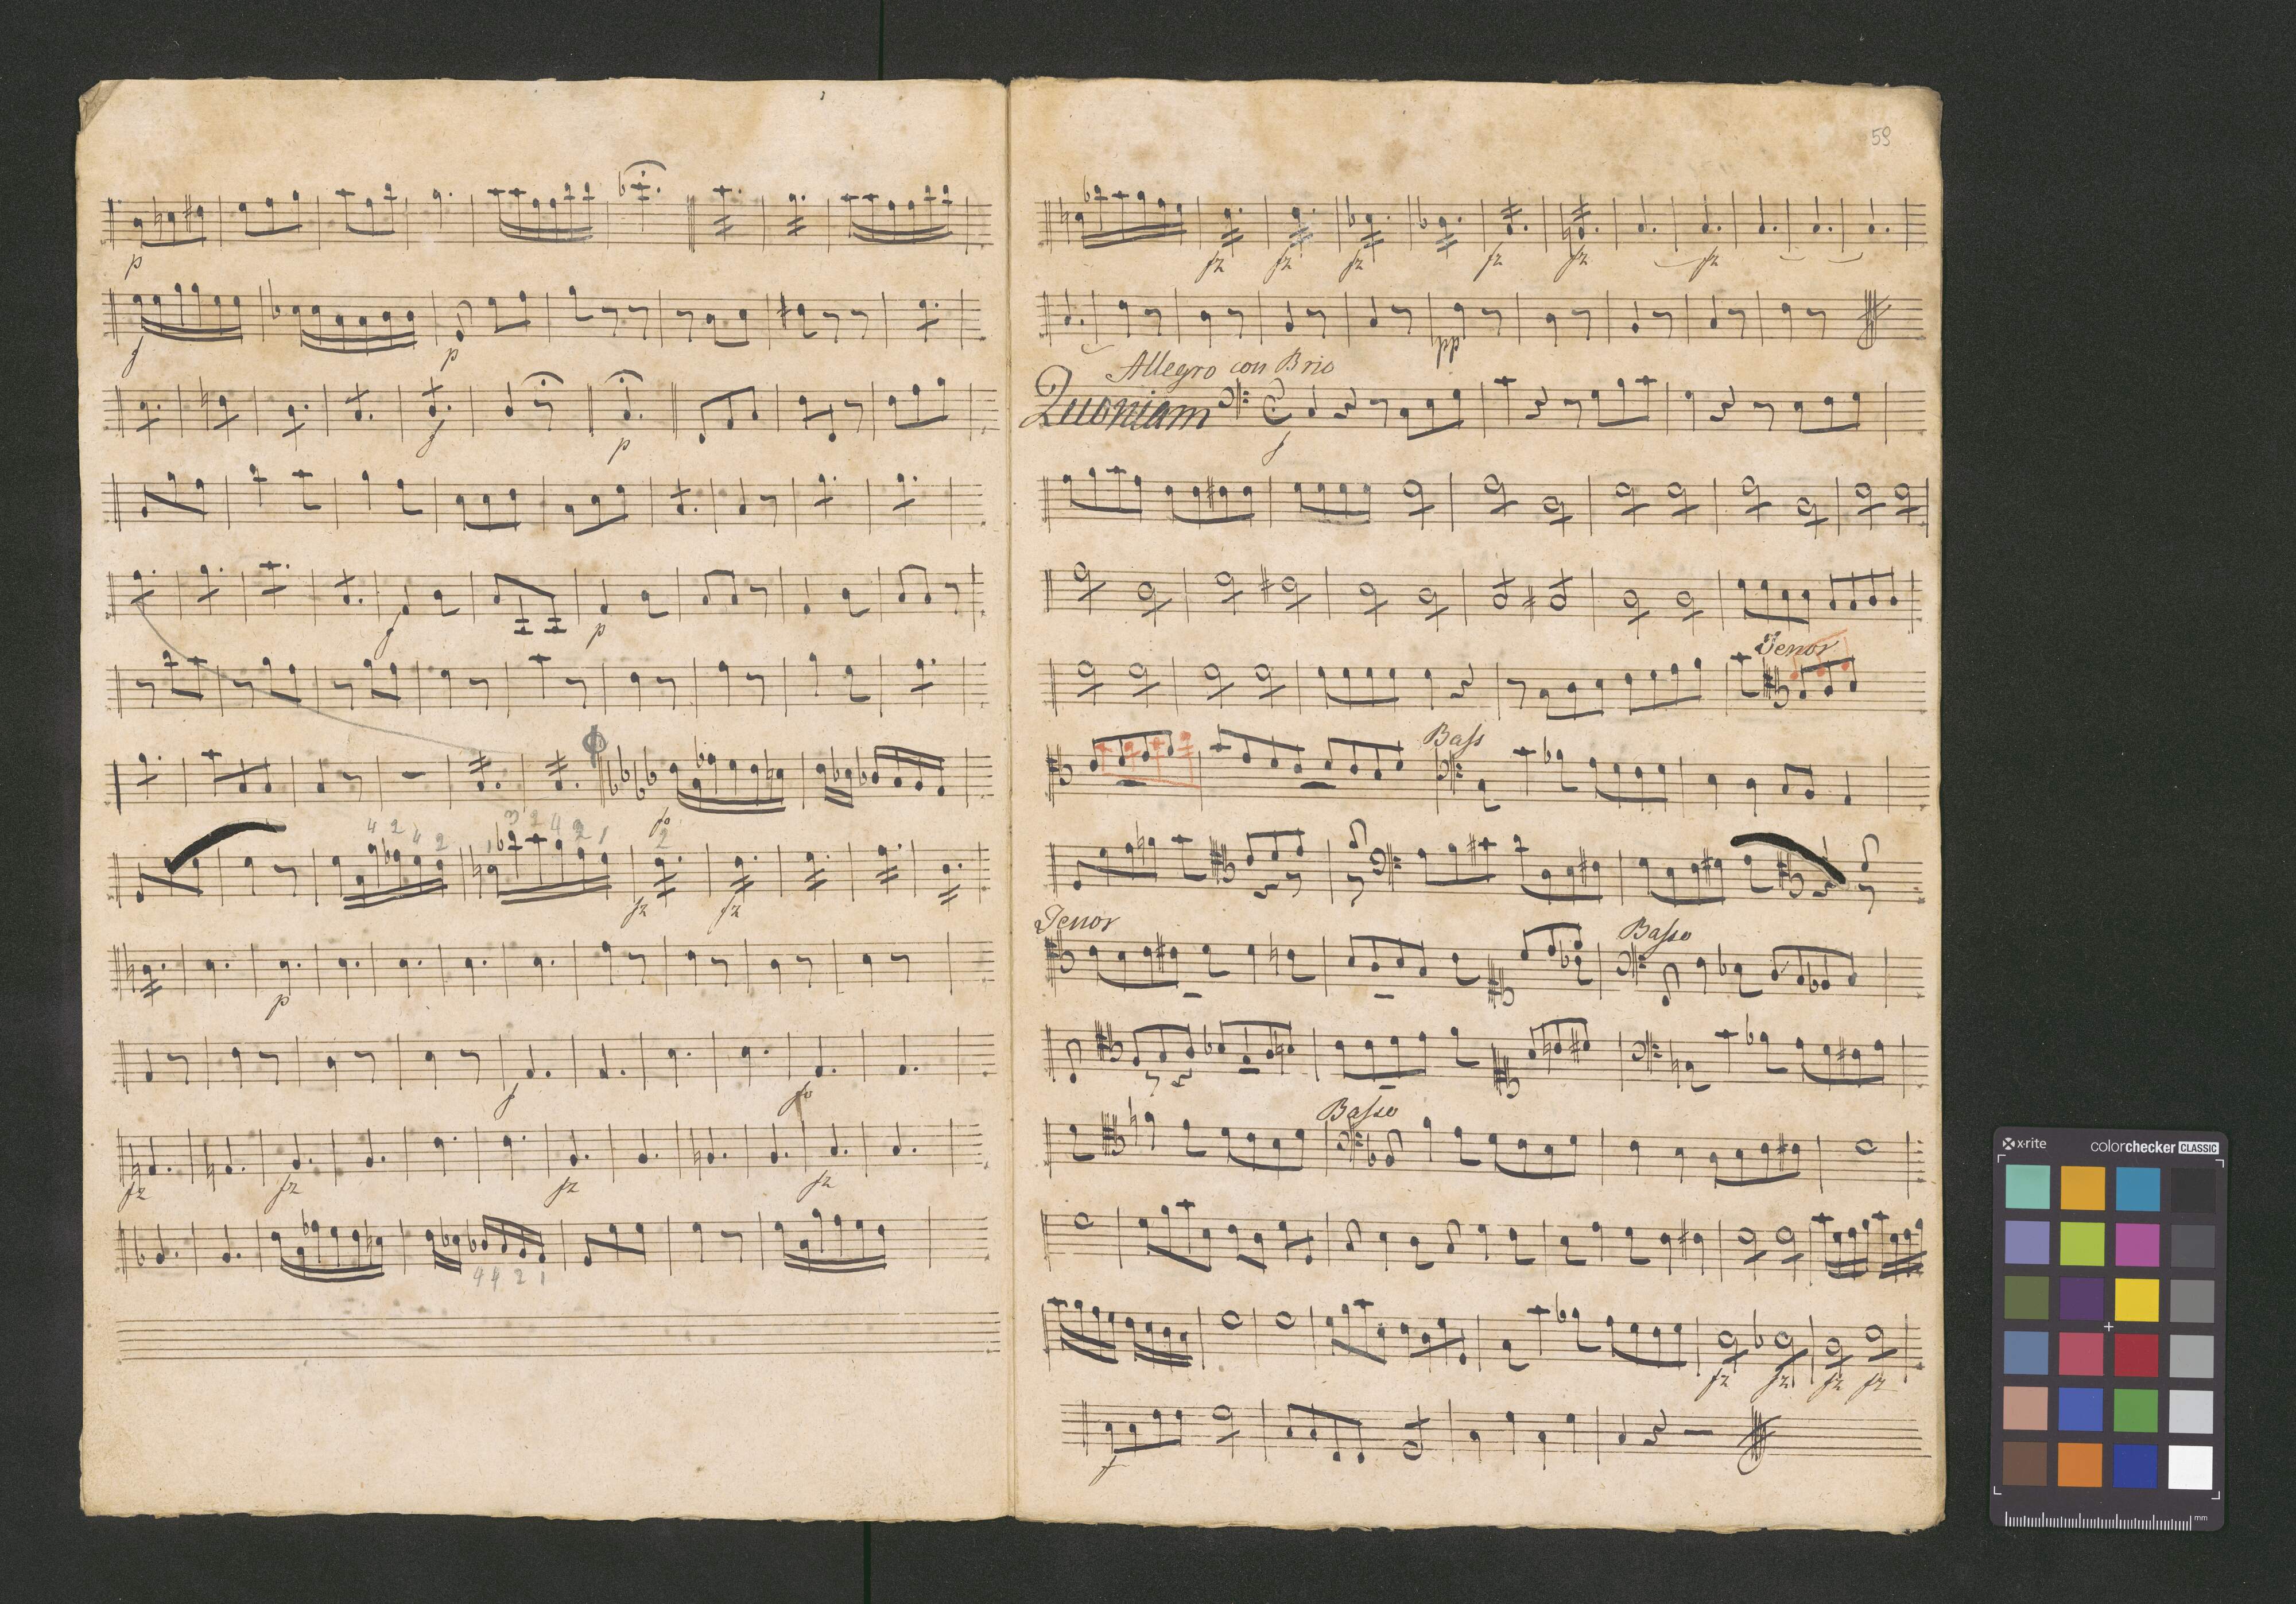 p
f p
f p
f p
4 2 4 2 1 3 2 4 2 1 fo 2
fz fz
p
f fo
fz fz fz fz
4 4 2 1
59
fz fz fz fz fz fz
pp
Allegro con Brio
Quoniam f
Tenor
Bass
Tenor Basso
Basso
fz fz fz fz
f
x-rite colorchecker CLASSIC
mm